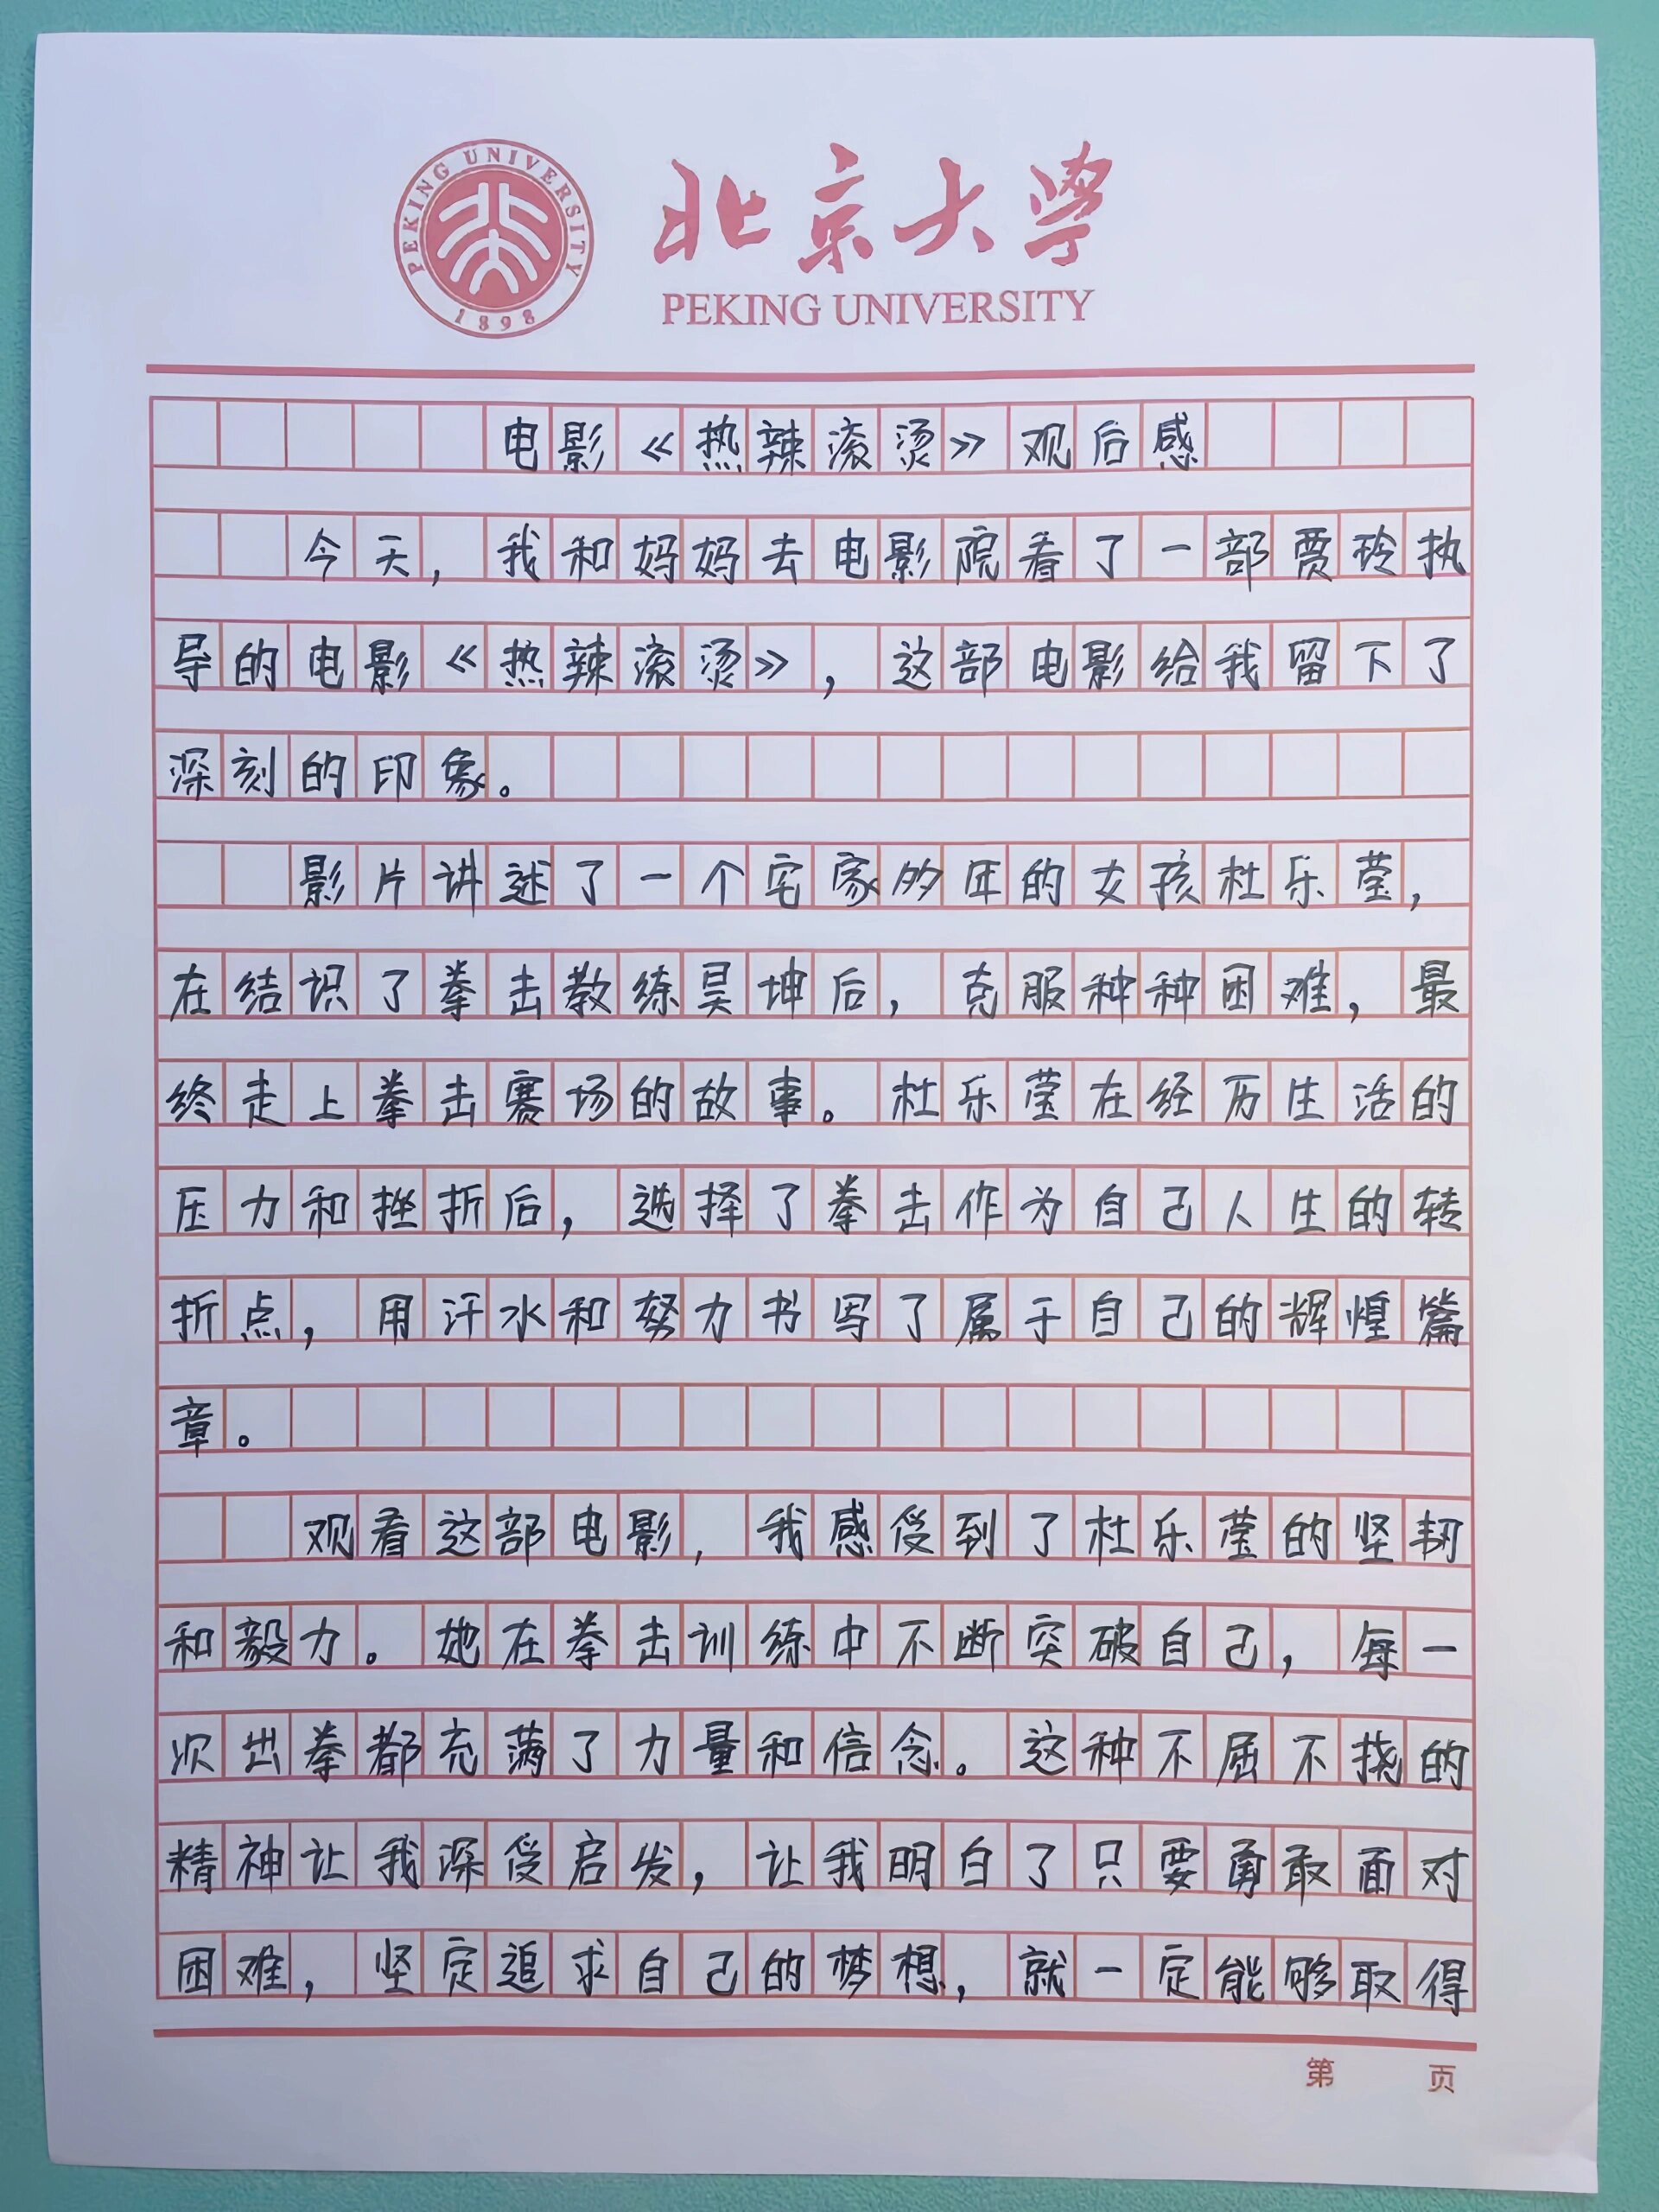 PEKING UNIVERSITY
1898
北京大学
PEKING UNIVERSITY
电影《热辣滚烫》观后感
今天，我和妈妈去电影院看了一部贾玲执
导的电影《热辣滚烫》，这部电影给我留下了
深刻的印象。
影片讲述了一个宅家多年的女孩杜乐莹，
在结识了拳击教练昊坤后，克服种种困难，最
终走上拳击赛场的故事。杜乐莹在经历生活的
压力和挫折后，选择了拳击作为自己人生的转
折点，用汗水和努力书写了属于自己的辉煌篇
章。
观看这部电影，我感受到了杜乐莹的坚韧
和毅力。她在拳击训练中不断突破自己，每一
次出拳都充满了力量和信念。这种不屈不挠的
精神让我深受启发，让我明白了只要勇敢面对
困难，坚定追求自己的梦想，就一定能够取得
第 页